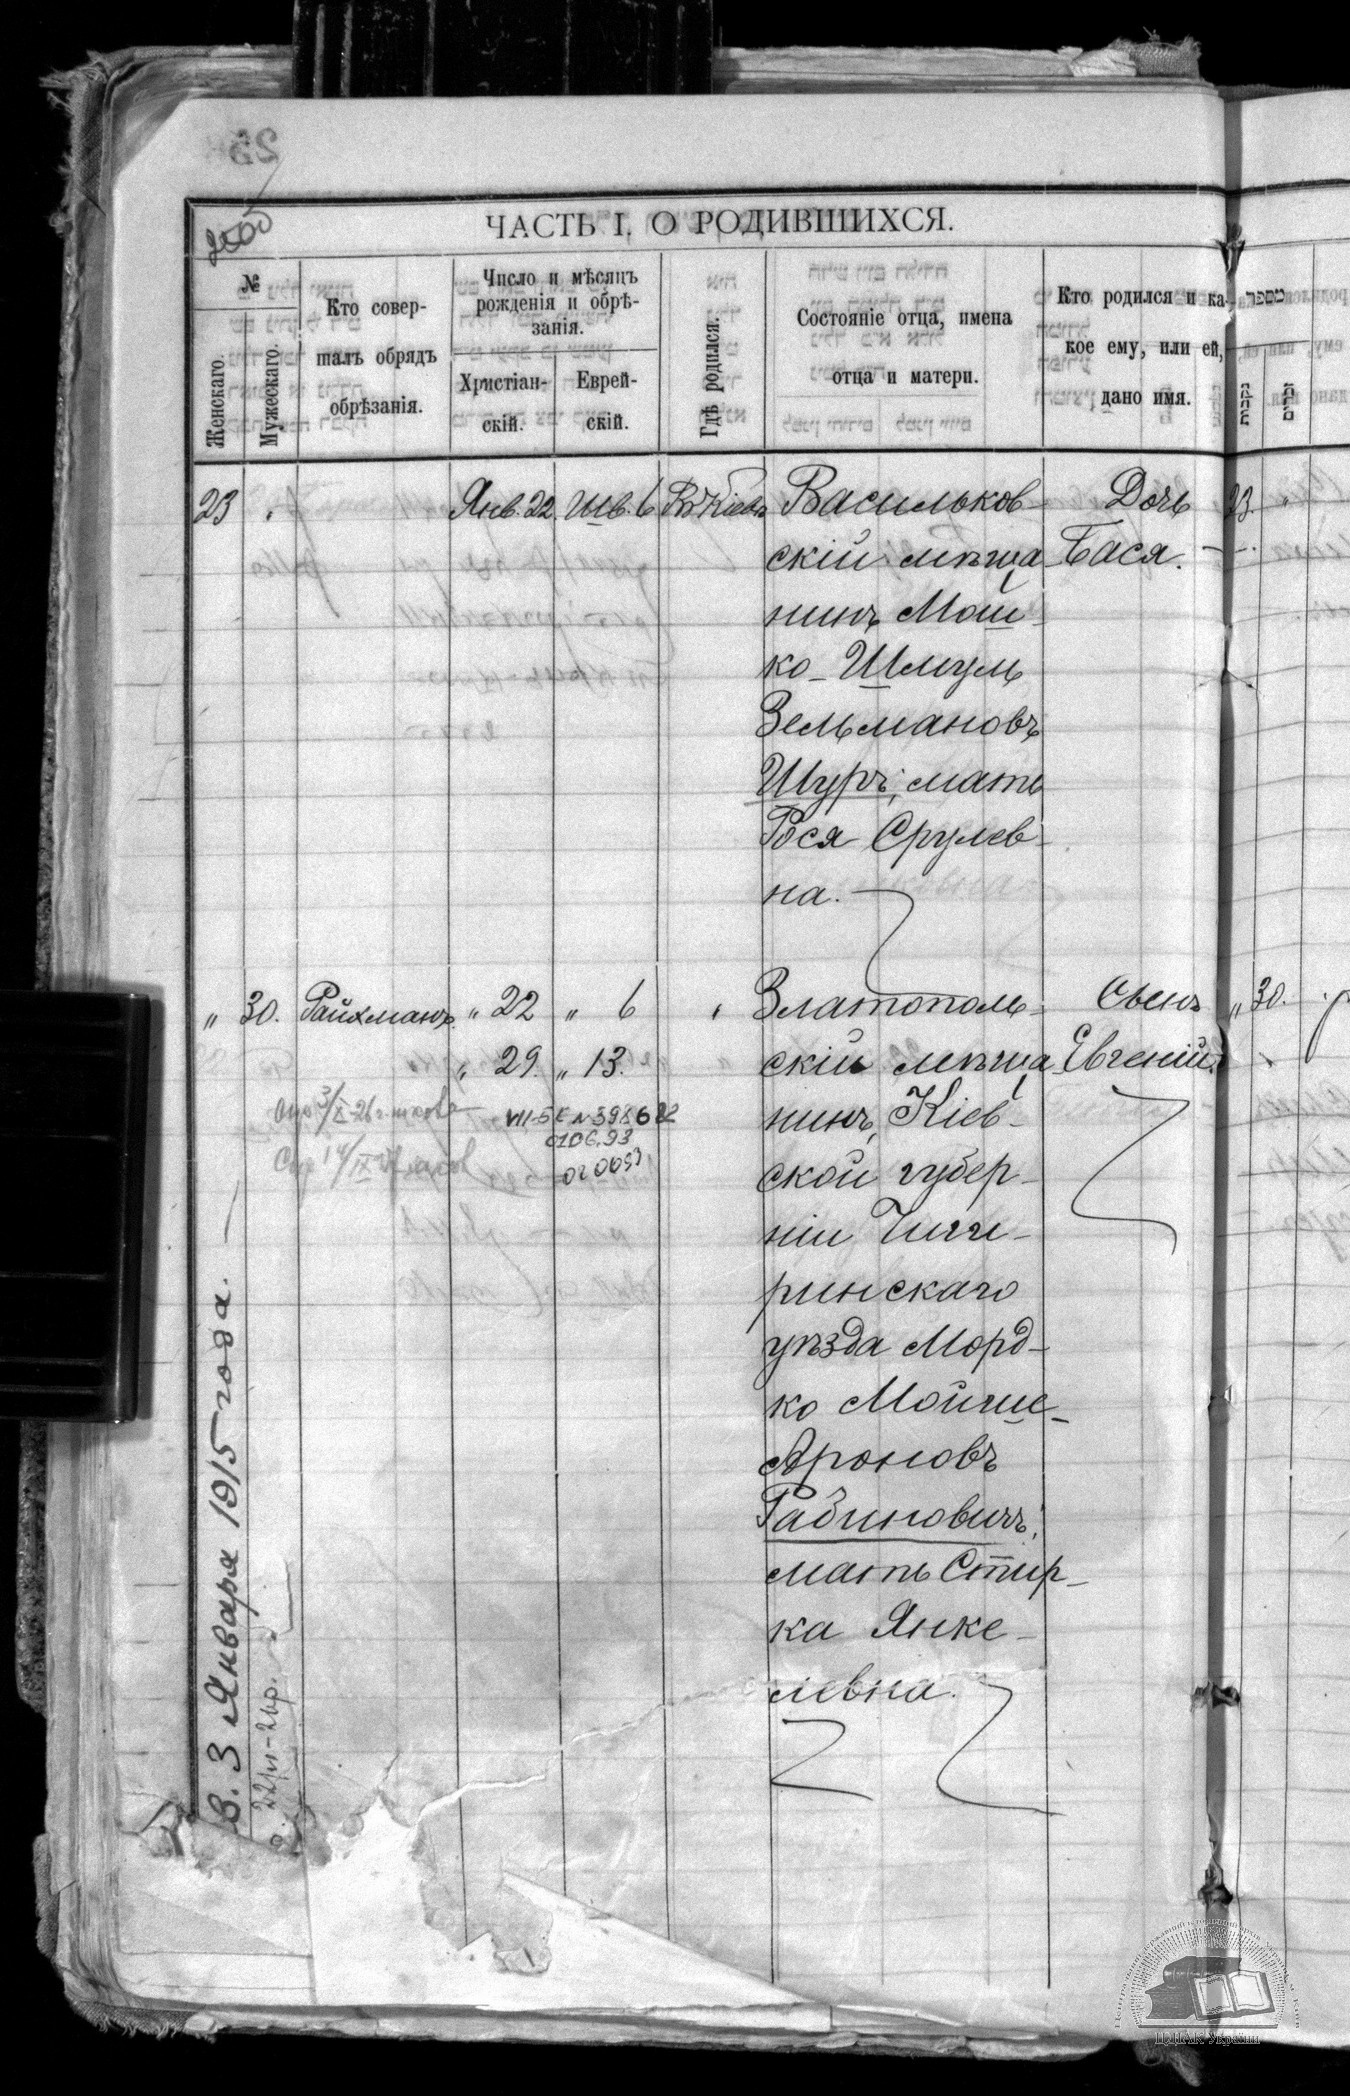 ЧАСТЬ I. О РОДИВШИХСЯ.
№
Женскаго.
Мужескаго.
Кто совер-
шалъ обрядъ
обрѣзанія.
Число и мѣсяцъ
рожденія и обрѣ-
занія.
Христіан-
скій.
Еврей-
скій.
Гдѣ родился.
Состояніе отца, имена
отца и матери.
Кто родился и ка-
кое ему, или ей,
дано имя.
23 Янв. 22. Шв. 6 Въ Кіевѣ
Васильков-
скій мѣща-
нинъ Мош-
ко-Шмуль
Зельмановъ
Шуръ; мать
Рося Срулев-
на.
Дочь
Бася.
23.
" 30. Райхманъ " 22 " 6 "
" 29. " 13.
Златополь-
скій мѣща-
нинъ, Кіев-
ской губер-
ніи Чиги-
ринскаго
уѣзда Морд-
ко Мойше-
Ароновъ
Рабиновичъ;
мать Стир-
ка Янке-
левна.
Сынъ
Евгеній.
" 30.
VII-БК № 398682
020093
В. 3 Января 1915 года.
ЦДІАК України